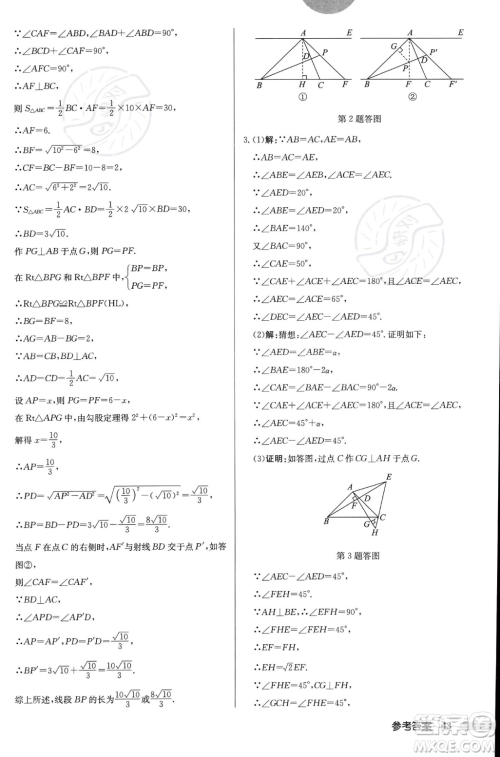 ∵∠CAF=∠CBD,
∴∠CBD+∠BCF=∠CAF+∠BCF=90°,
∴∠AFC=90°.
∴AF⊥BC.
则S△ABC=1/2 BC·AF=1/2×10×AF=30,
∴AF=6.
∴BF=√(10²-6²)=8.
∴CF=BC-BF=10-8=2.
∴AC=√(6²+2²)=2√10.
∵S△ABC=1/2 AC×BD=1/2×2√10×BD=30,
∴BD=3√10.
作PG⊥AB于点G,则PG=PF.
在Rt△BPG和Rt△BPF中{BP=BP,
PG=PF,
∴Rt△BPG≌Rt△BPF(HL).
∴BG=BF=8,
∴AG=AB-BG=2.
∵AB=BC,BD⊥AC,
∴AD=CD=1/2 AC=√10.
设AP=x,则PG=PF=6-x,
在Rt△APG中,由勾股定理得2²+(6-x)²=x²,
解得x=10/3.
∴AP=10/3,
∴PD=√(AP²-AD²)=√((10/3)²-(√10)²)=√10/3.
∴BP=BD-PD=3√10-√10/3=8√10/3.
当点F在点C的右侧时,AF′与射线BD交于点P′,如答
图②,
∵BD⊥AC,
∴∠APD=∠AP′D,
∴AP=AP′,PD=P′D=√10/3,
综上所述,线段BP的长为8√10/3或10√10/3.
A E
D P
B H C F
①
A E
G P′
D
P
B C F
②
第2题答图
3.(1)解:∵AB=AC,AE=AB,
∴AB=AC=AE.
∴∠ABE=∠AEB,∠ACE=∠AEC.
∵∠AED=20°,
∴∠ABE=∠AED=20°,
∴∠BAE=140°,
又∠BAC=90°,
∴∠CAE=50°,
∴∠DEC=∠AEC-∠AED=45°.
(2)解:猜想:∠AEC-∠AED=45°.证明如下:
∵∠AED=∠ABE=α,
∴∠BAE=180°-2α,
∴∠CAE=∠BAE-∠BAC=90°-2α.
∴∠AEC=45°+α,
∴∠AEC-∠AED=45°.
(3)证明:如答图,过点C作CG⊥AH于点G.
A E
D
F
B C
G
H
第3题答图
∵∠AEC-∠AED=45°,
∴∠FEH=45°.
∵AH⊥BE,
∴∠FHE=∠FEH=45°,
∴EF=FH,
∴EH=√2EF.
∵∠FHE=45°,CG⊥FH,
∴∠GCH=∠FHE=45°,
参考答案